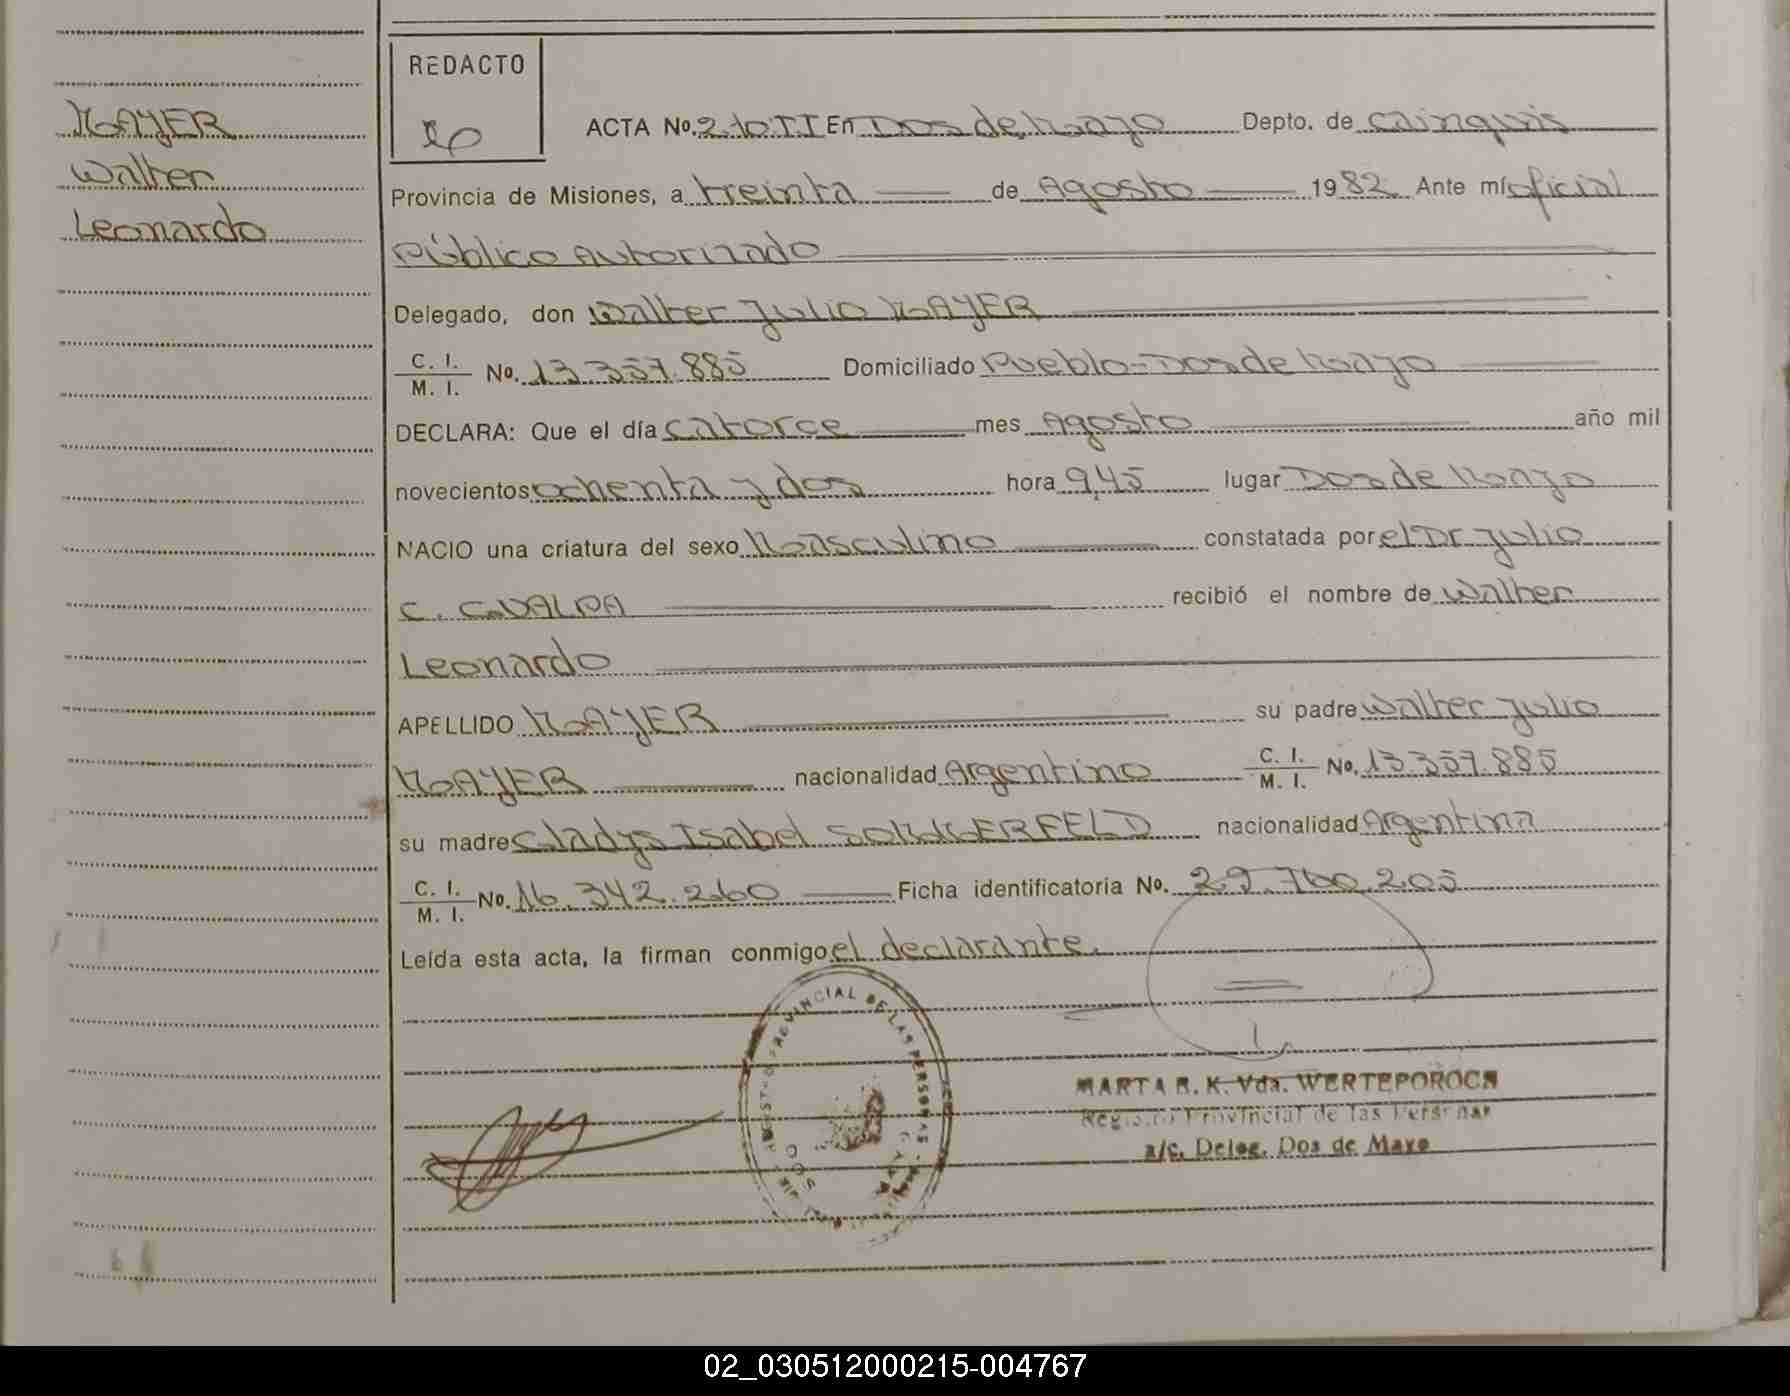 MAYER
Walter
Leonardo
REDACTO
ACTA No. 210 TI En Dos de Mayo Depto. de Cainguás
Provincia de Misiones, a treinta de Agosto 1982 Ante mí oficial
Público Autorizado
Delegado, don Walter Julio MAYER
C. I. / M. I. No. 13.357.885 Domiciliado Pueblo-Dos de Mayo
DECLARA: Que el día catorce mes Agosto año mil
novecientos ochenta y dos hora 9,45 lugar Dos de Mayo
NACIO una criatura del sexo Masculino constatada por el Dr Julio
C. recibió el nombre de Walter
Leonardo
APELLIDO MAYER su padre Walter Julio
MAYER nacionalidad Argentino C. I. / M. I. No. 13.357.885
su madre Gladys Isabel nacionalidad Argentina
C. I. / M. I. No. 16.342.260 Ficha identificatoria No. 29.760.205
Leída esta acta, la firman conmigo el declarante.
PROVINCIAL DE LAS PERSONAS
MARTA R. K. Vda. WERTEPOROCH
Registro Provincial de las Personas
a/c. Deleg. Dos de Mayo
02_030512000215-004767